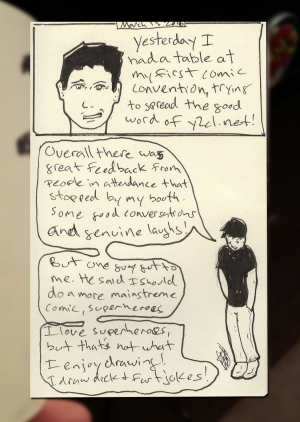 Yesterday I
had a table at
my first comic
convention, trying
to spread the good
word of y2cl.net!
Overall there was
great feedback from
people in attendance that
stopped by my booth.
Some good conversations
and genuine laughs!
But one guy got to
me. He said I should
do a more mainstreme
comic, superheroes
I love superheroes,
but that's not what
I enjoy drawing!
I draw dick & fart jokes!